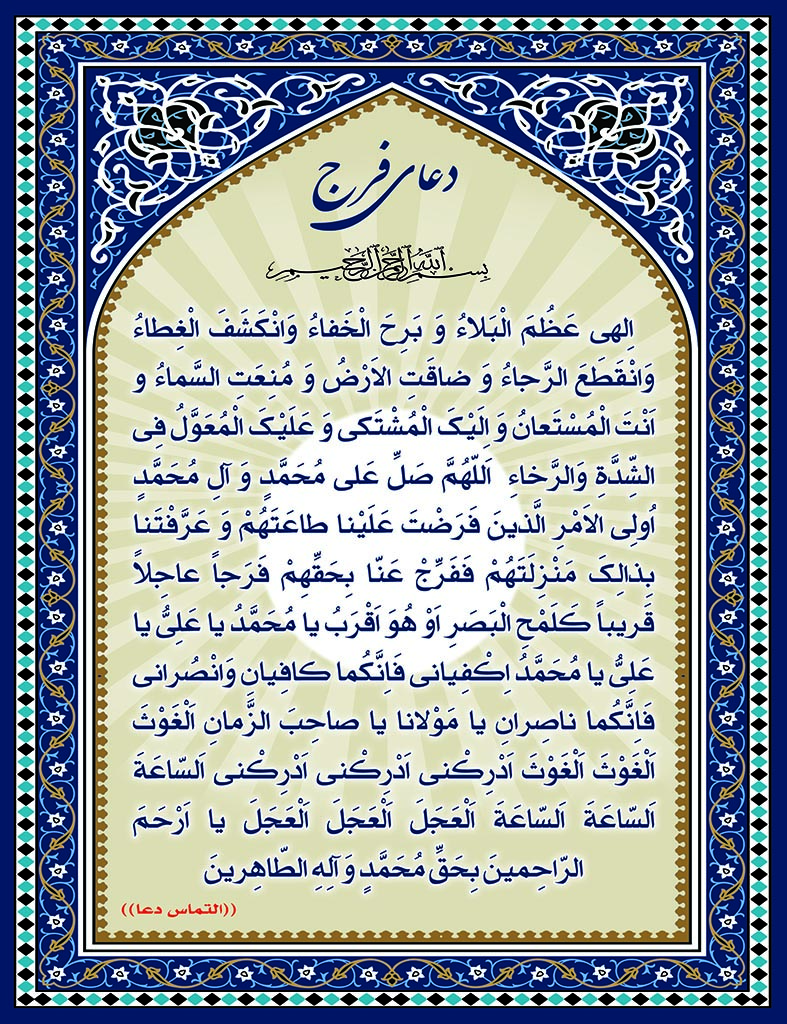 دعای فرج
بسم الله الرحمن الرحیم
اِلهی عَظُمَ الْبَلاءُ وَ بَرِحَ الْخَفاءُ وَانْکَشَفَ الْغِطاءُ
وَانْقَطَعَ الرَّجاءُ وَ ضاقَتِ الاَرْضُ وَ مُنِعَتِ السَّماءُ وَ
اَنْتَ الْمُسْتَعانُ وَ اِلَیْکَ الْمُشْتَکی وَ عَلَیْکَ الْمُعَوَّلُ فِی
الشِّدَّةِ وَالرَّخاءِ اَللّهُمَّ صَلِّ عَلی مُحَمَّدٍ وَ آلِ مُحَمَّدٍ
اُولِی الاَمْرِ الَّذینَ فَرَضْتَ عَلَیْنا طاعَتَهُمْ وَ عَرَّفْتَنا
بِذالِکَ مَنْزِلَتَهُمْ فَفَرِّجْ عَنّا بِحَقِّهِمْ فَرَجاً عاجِلاً
قَریباً کَلَمْحِ الْبَصَرِ اَوْ هُوَ اَقْرَبُ یا مُحَمَّدُ یا عَلِیُّ یا
عَلِیُّ یا مُحَمَّدُ اِکْفِیانی فَاِنَّکُما کافِیانِ وَانْصُرانی
فَاِنَّکُما ناصِرانِ یا مَوْلانا یا صاحِبَ الزَّمانِ اَلْغَوْثَ
اَلْغَوْثَ اَلْغَوْثَ اَدْرِکْنی اَدْرِکْنی اَدْرِکْنی اَلسّاعَةَ
اَلسّاعَةَ اَلسّاعَةَ اَلْعَجَلَ اَلْعَجَلَ اَلْعَجَلَ یا اَرْحَمَ
الرّاحِمینَ بِحَقِّ مُحَمَّدٍ وَ آلِهِ الطّاهِرینَ
((التماس دعا))